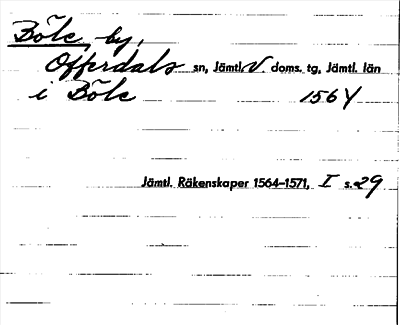 Böle, by,
Offerdals sn, Jämtl. V. doms. tg, Jämtl. län
i Böle 1564
Jämtl. Räkenskaper 1564–1571, I s. 29